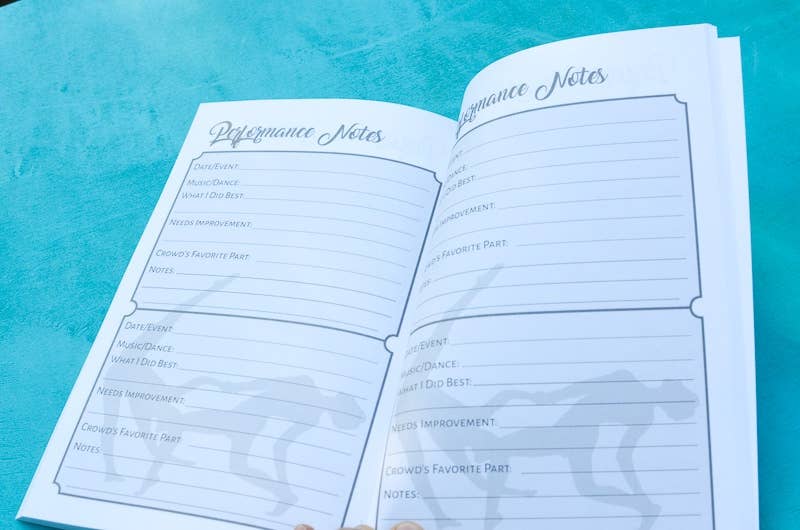 Performance Notes
Date/Event:
Music/Dance:
What I Did Best:
Needs Improvement:
Crowd's Favorite Part:
Notes:
Date/Event:
Music/Dance:
What I Did Best:
Needs Improvement:
Crowd's Favorite Part:
Notes:
Notes
Best:
Improvement:
Favorite Part:
Date/Event:
Music/Dance:
What I Did Best:
Needs Improvement:
Crowd's Favorite Part:
Notes: